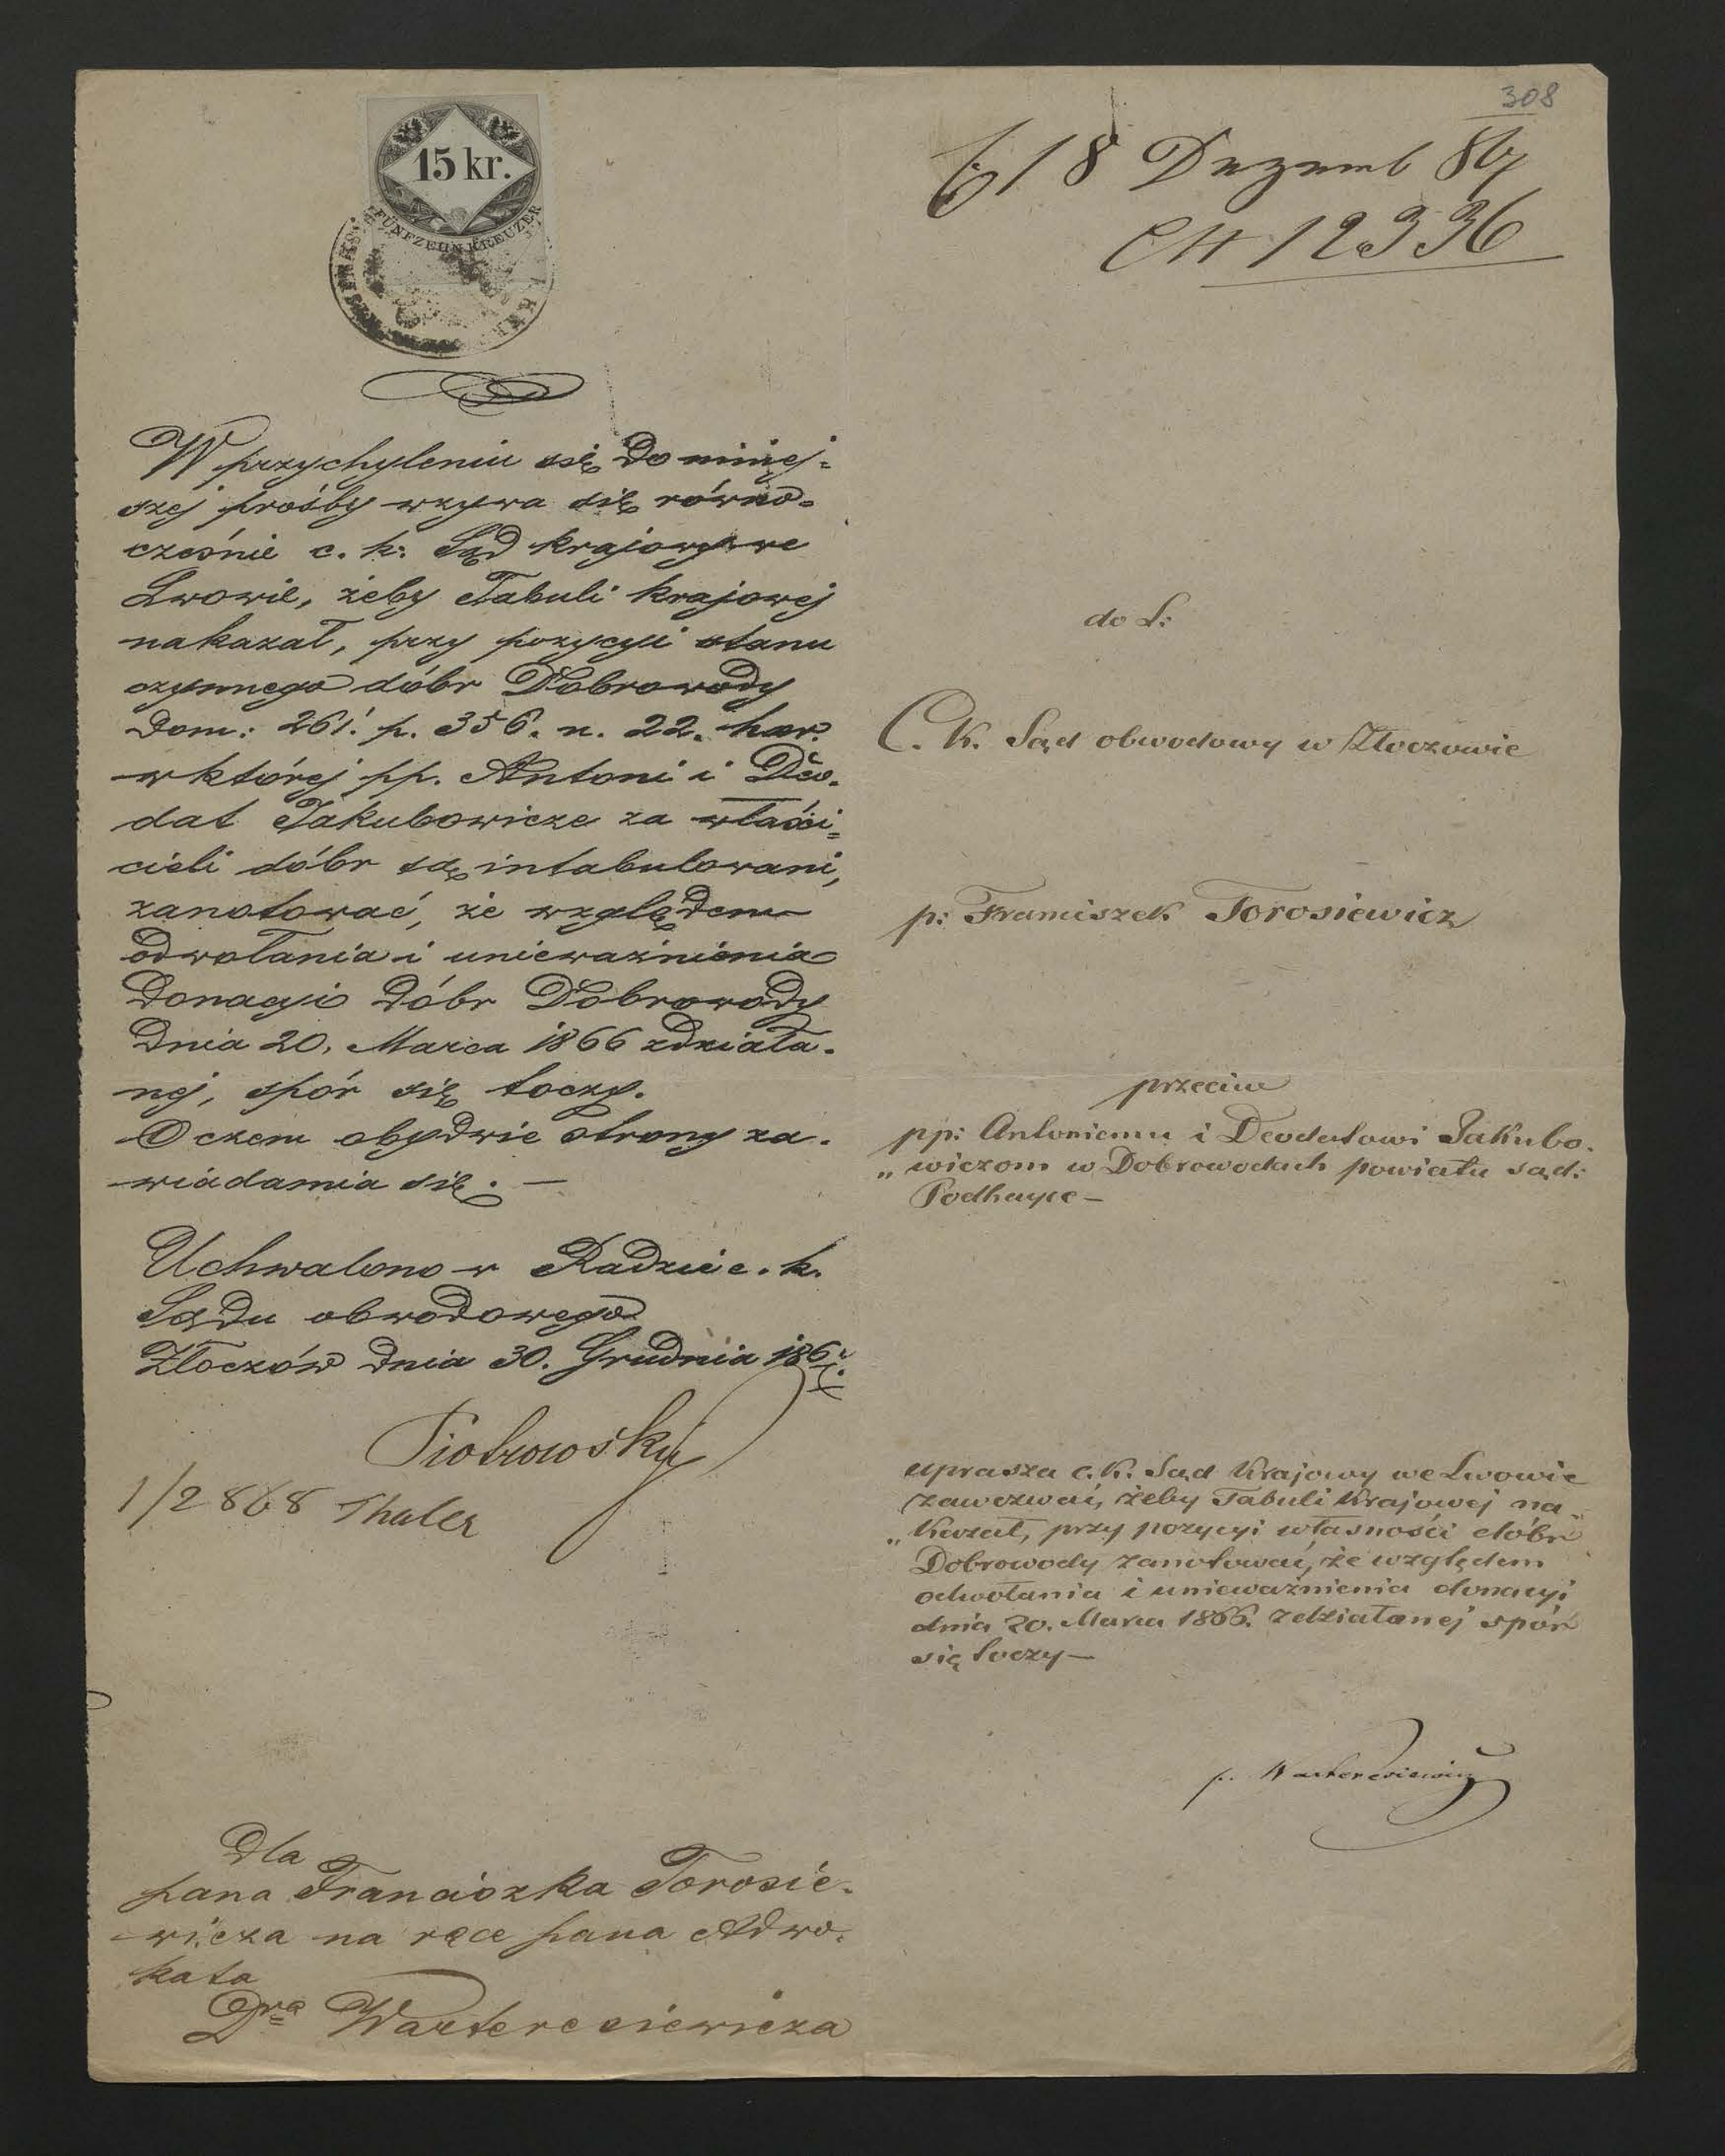 15 kr.
FÜNFZEHN KREUZER
W przychyleniu się do niniej=
szej prośby wzywa się równo-
cześnie c. k. Sąd krajowy we
Lwowie, żeby Tabuli krajowej
nakazał, przy pozycyi stanu
czynnego dóbr Dobrowody
Dom: 261. p. 356. n. 22. haer.
w której pp. Antoni i Deo-
dat Jakubowicze za właści=
cieli dóbr są intabulowani,
zanotować, że względem
odwołania i unieważnienia
Donacyi dóbr Dobrowody
Dnia 20. Marca 1866 zdziała-
nej, spór się toczy.
O czem obydwie strony za-
wiadamia się. —
Uchwalono w Radzie c. k.
Sądu obwodowego
Złoczów dnia 30. Grudnia 1867.
Piotrowsky
1/2 868 Thaler
Dla
pana Franciszka Torosie-
wicza na ręce pana Adwo-
kata
Dra Warteresiewicza
308
18 Dezemb 867
12336
do L:
C. K. Sąd obwodowy w Złoczowie
p: Franciszek Torosiewicz
przeciw
pp: Antoniemu i Deodatowi Jakubo-
„wiczom w Dobrowodach powiatu sąd:
Podhayce –
uprasza c. K. Sąd Krajowy we Lwowie
zawezwać, żeby Tabuli Krajowej na„
„kazał, przy pozycyi własności dóbr
Dobrowody zanotować, że względem
odwołania i unieważnienia donacyi
dnia 20. Marca 1866. zdziałanej spór
się toczy –
p. Warteresiewicz